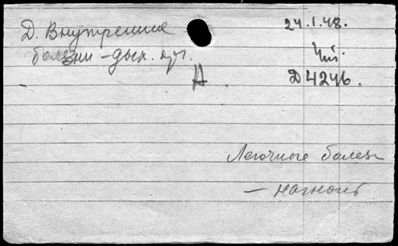 Д. Внутренние
болезни – дых. пут.
24.I.48.
А
Д4246.
Легочные болез
— нагноит